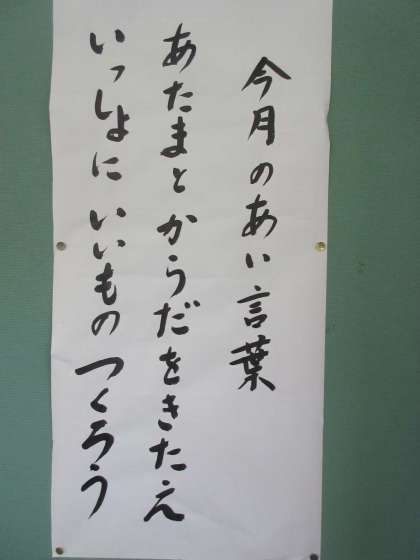 今月のあい言葉
あたまとからだをきたえ
いっしょに いいもの つくろう